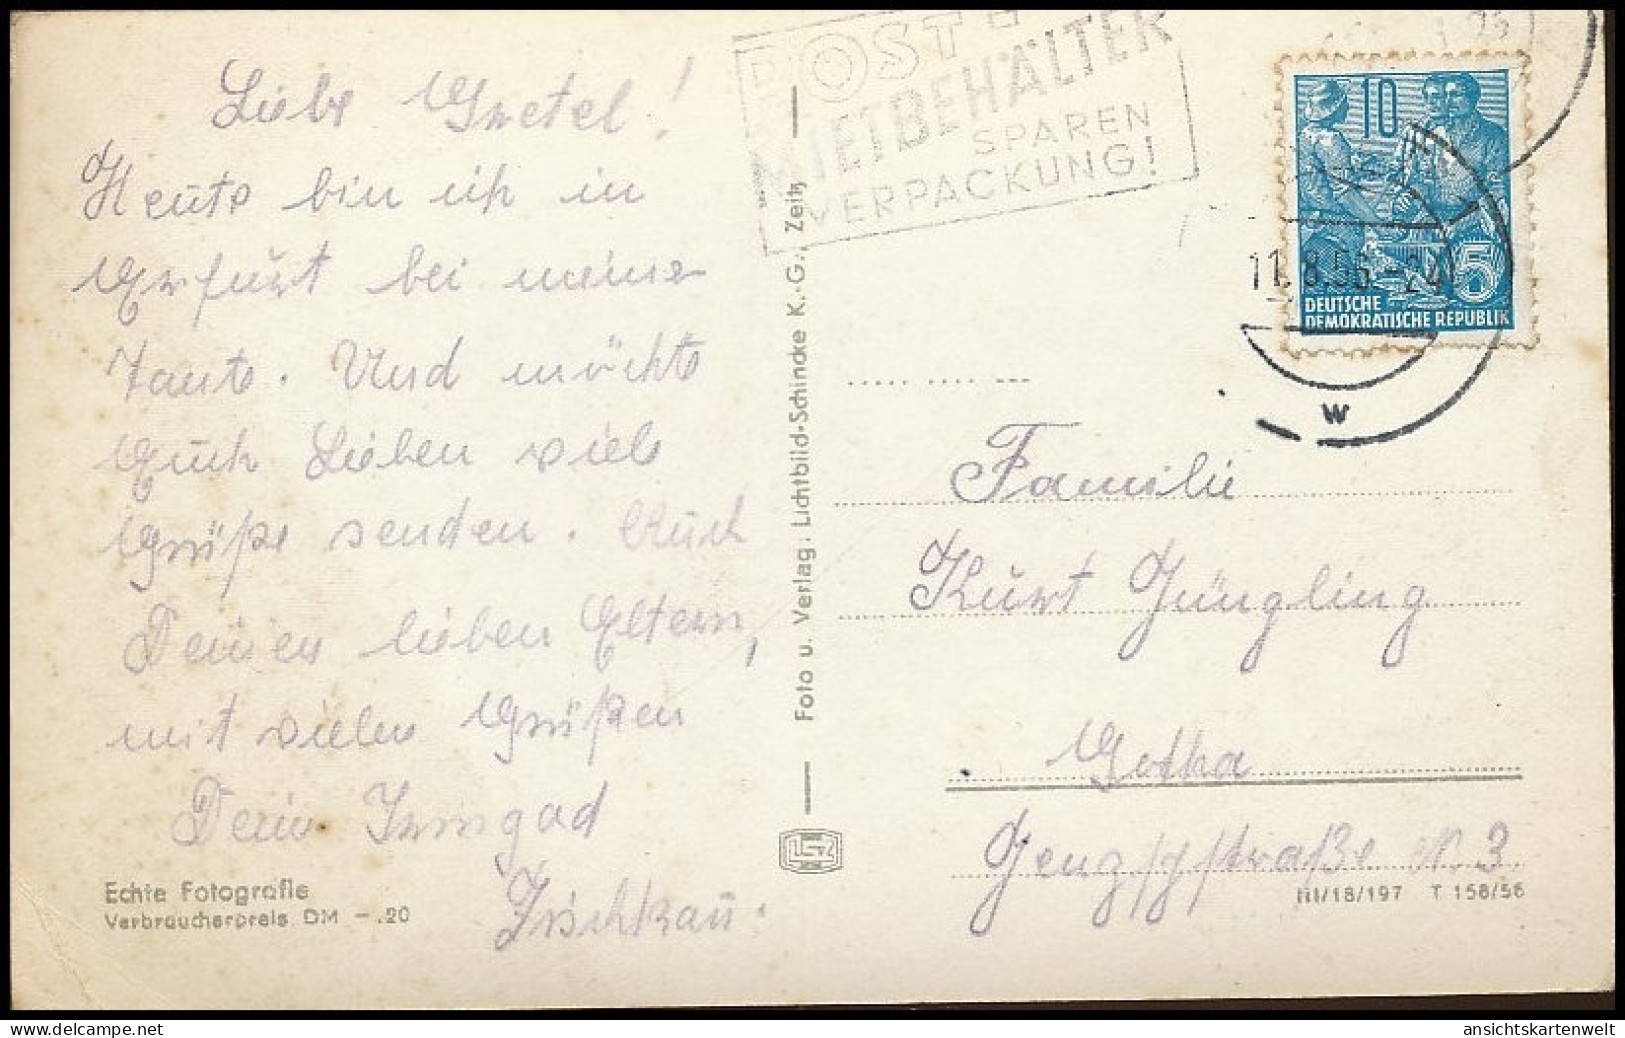 Liebe Gretel!
Heute bin ich in
Erfurt bei meiner
Tante. Und möchte
Euch Lieben viele
Grüße senden. Auch
Deinen lieben Eltern,
mit vielen Grüßen
Deine Irmgad
Zischkau.
Echte Fotografie
Verbraucherpreis DM -.20
Foto u. Verlag: Lichtbild-Schincke K.-G., Zeitz
POST-
MIETBEHÄLTER
SPAREN
VERPACKUNG!
10
5
DEUTSCHE
DEMOKRATISCHE REPUBLIK
11.8.56.-24
w
Familie
Kurt Jüngling
Gotha
straße N. 3
III/18/197 T 158/56
ansichtskartenwelt